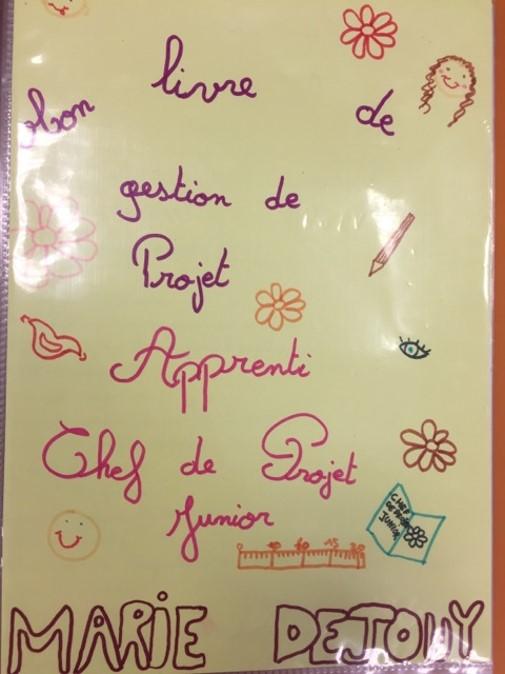 Mon livre de
gestion de
Projet
Apprenti
Chef de Projet
Junior
CHEF
DE PROJET
JUNIOR
10 15 20
MARIE DEJOUY